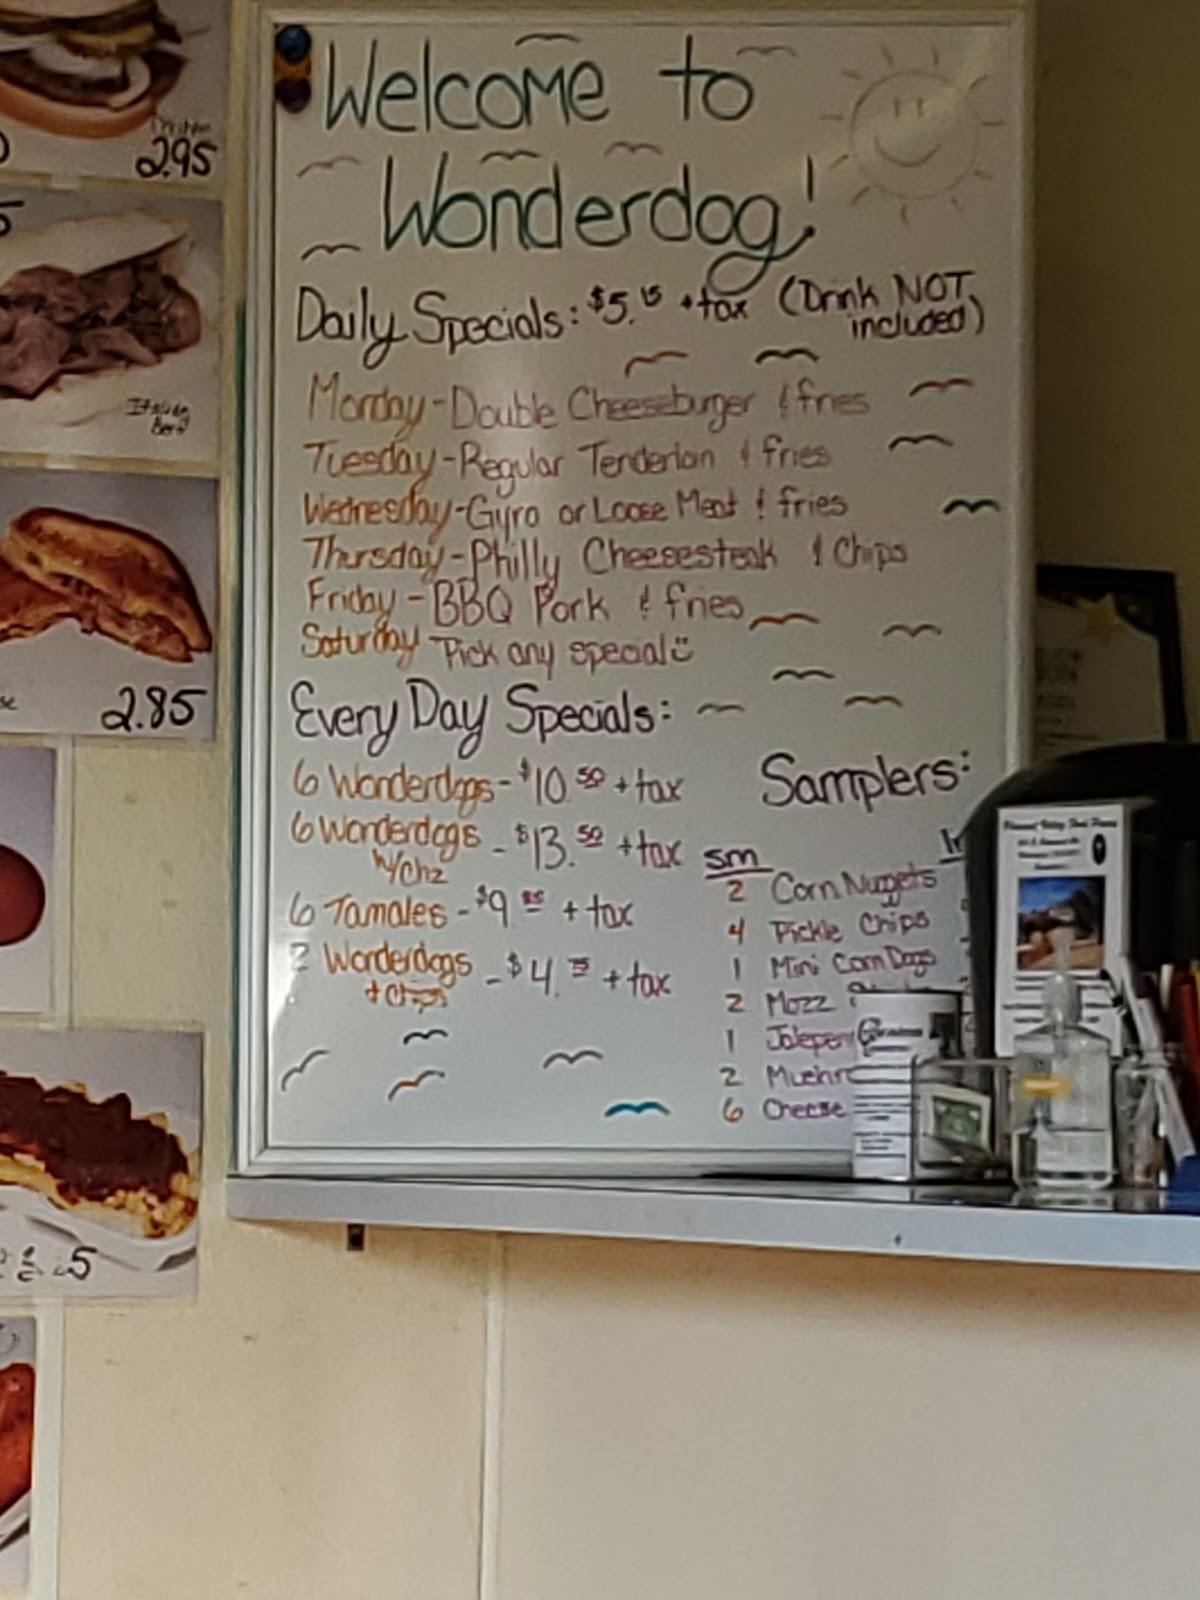 Welcome to
Wonderdog!
Daily Specials: $5.15 + tax (Drink NOT
included)
Monday - Double Cheeseburger & fries
Tuesday - Regular Tenderloin & fries
Wednesday - Gyro or Loose Meat & fries
Thursday - Philly Cheesesteak & Chips
Friday - BBQ Pork & fries
Saturday - Pick any special
Every Day Specials:
6 Wonderdogs - $10.50 + tax
6 Wonderdogs - $13.50 + tax
w/Chz
6 Tamales - $9 + tax
2 Wonderdogs - $4. + tax
+ Chips
Samplers:
sm
2 Corn Nuggets
4 Pickle Chips
1 Mini Corn Dogs
2 Mozz
1
2
6 Cheese
2.95
Italian
Beef
2.85